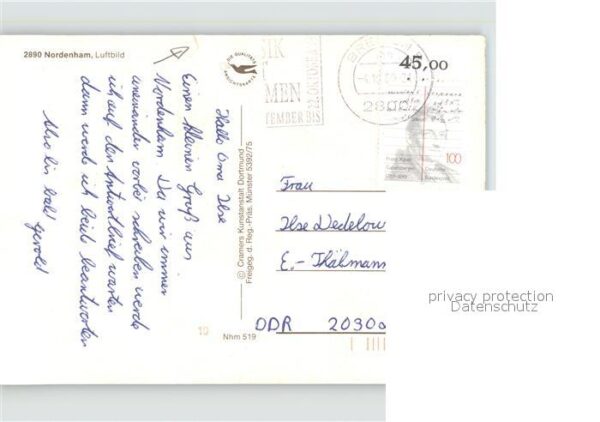 2890 Nordenham, Luftbild
Hallo Oma Ilse
Einen kleinen Gruß aus
Nordenham. Da wir immer
aneinander vorbei schreiben werde
ich auf den Antwortbrief warten
dann werde ich beide beantworten
Also bis bald
Gerold
DIE QUALITÄTS
ANSICHTSKARTE
© Cramers Kunstanstalt Dortmund
Freigeg. d. Reg.-Präs. Münster 5392/75
Nhm 519
10
MEN
TEMBER BIS
BREMEN
2800
45,00
100
Deutsche
Bundespost
Frau
Ilse Dedelow
E.-Thälmann
DDR 2030
privacy protection
Datenschutz